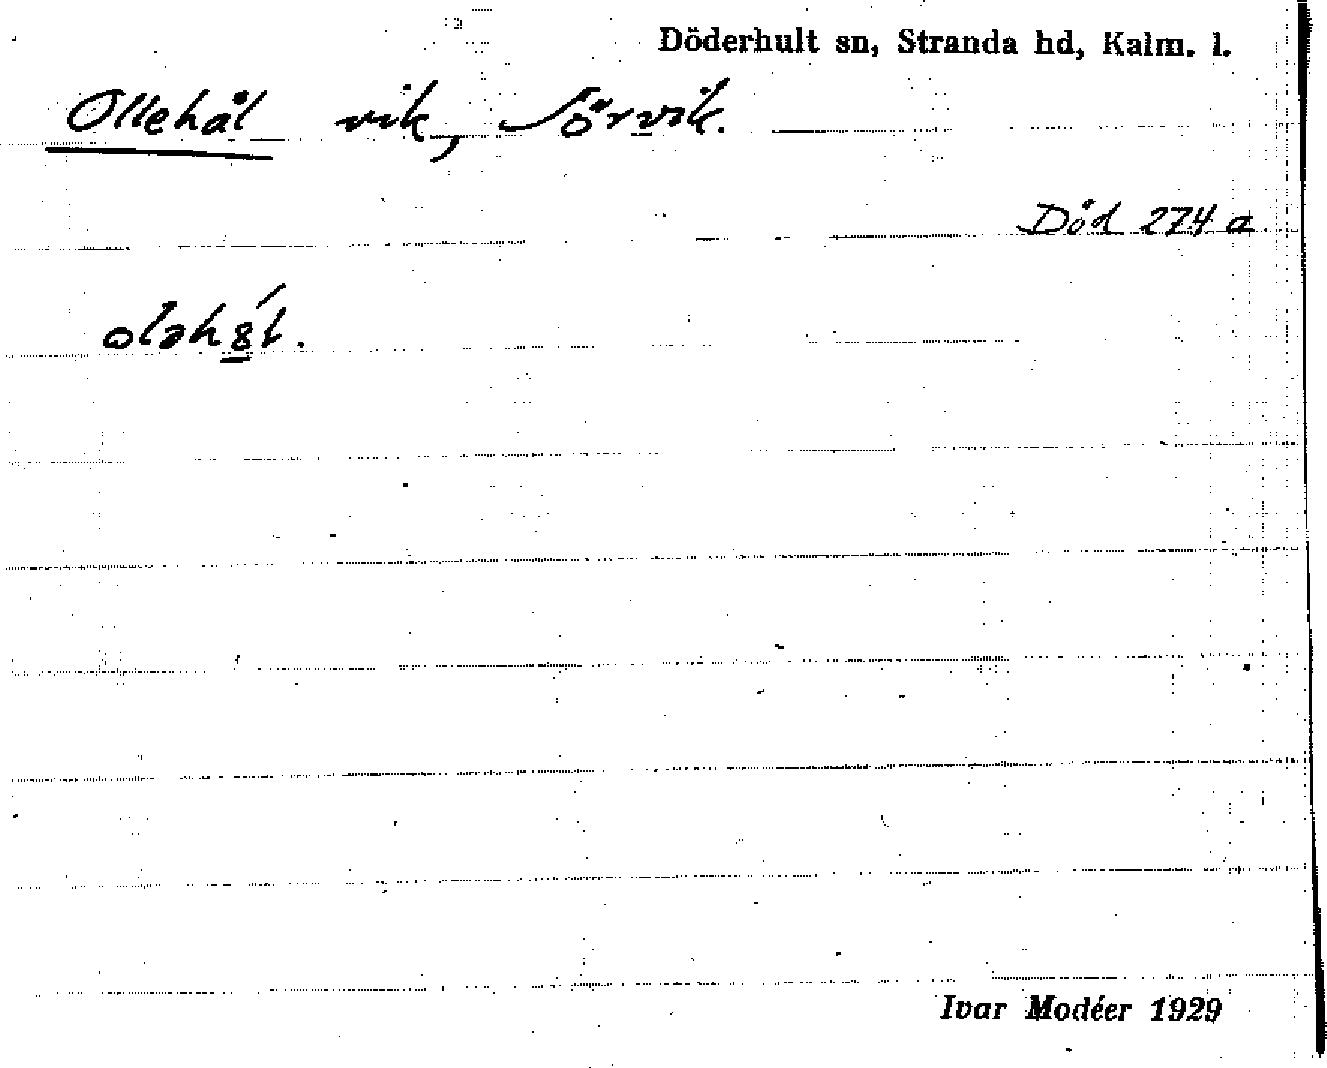 Döderhult sn, Stranda hd, Kalm. l.
Ollehål vik, Sörvik.
Död 274 a
Ivar Modéer 1929